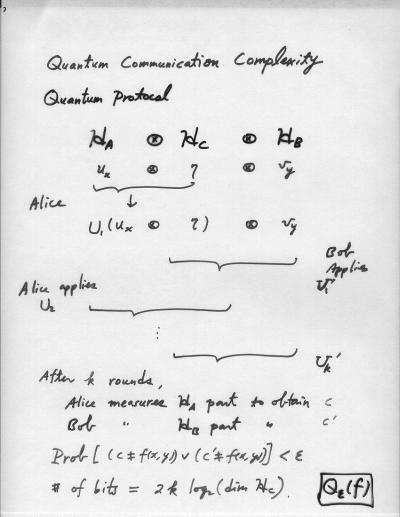 Quantum Communication Complexity
Quantum Protocol
H_A ⊗ H_C ⊗ H_B
u_x ⊗ η ⊗ v_y
Alice ↓
U_1(u_x ⊗ η) ⊗ v_y
Bob
Applies
U_1'
Alice applies
U_2
⋮
U_k'
After k rounds,
Alice measures H_A part to obtain c
Bob " H_B part " c'
Prob[(c ≠ f(x,y)) ∨ (c' ≠ f(x,y))] < ε
# of bits = 2k log_2(dim H_C).
Q_ε(f)